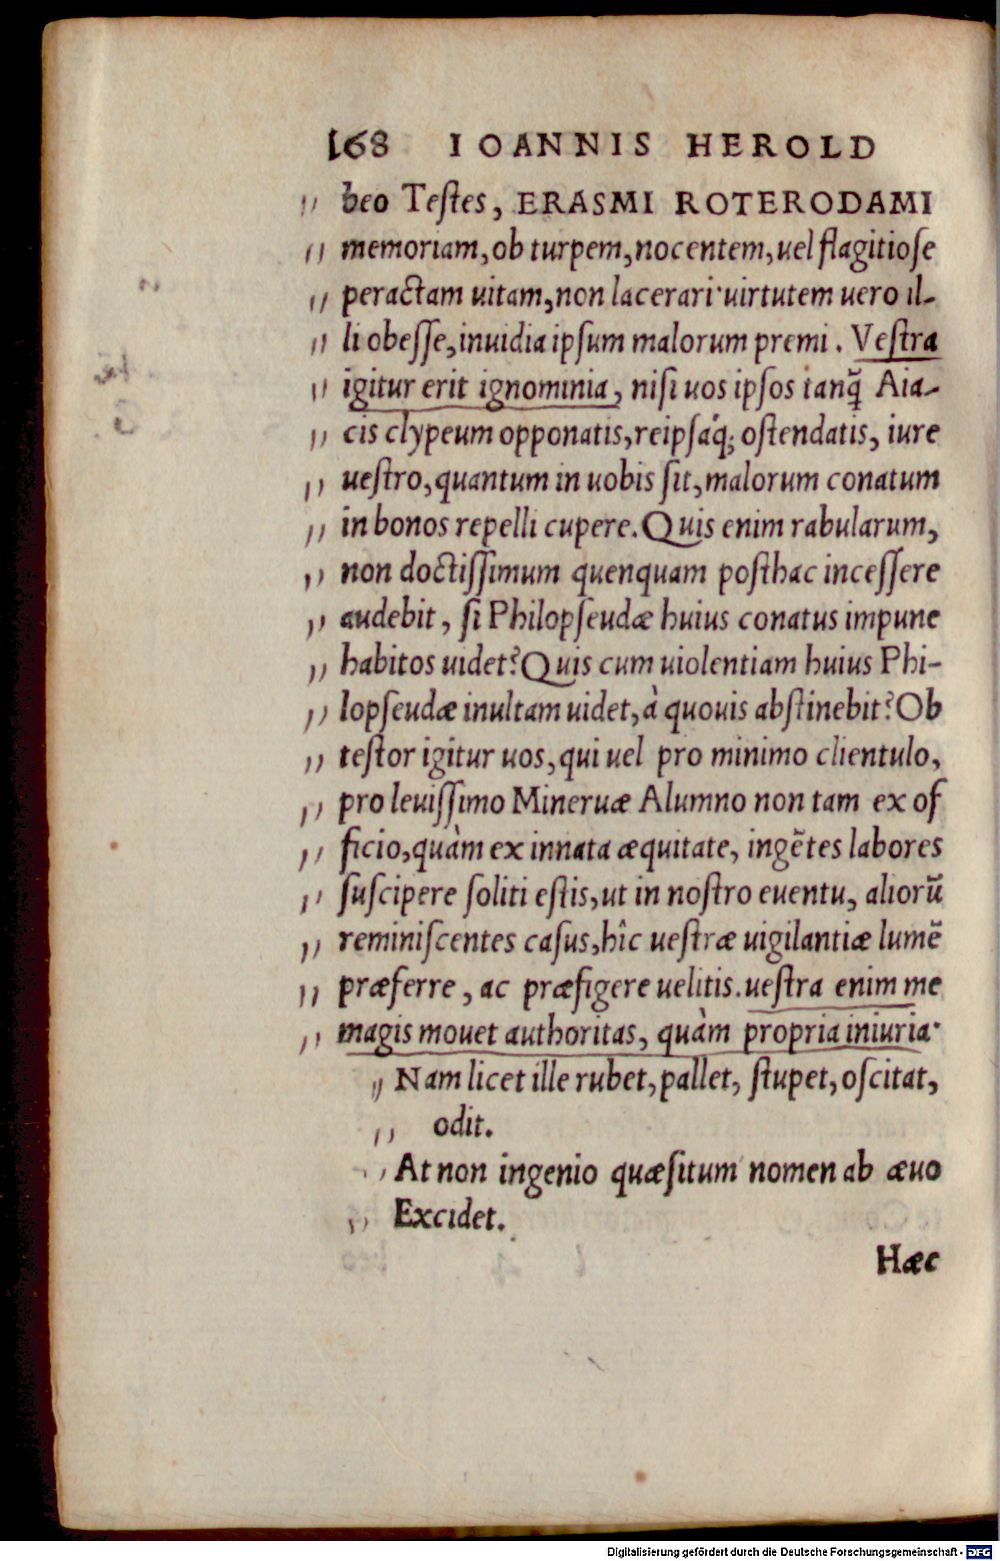 168 IOANNIS HEROLD
„ beo Teſtes, ERASMI ROTERODAMI
„ memoriam, ob turpem, nocentem, uel flagitioſe
„ peractam uitam, non lacerari· uirtutem uero il-
„ li obeſſe, inuidia ipſum malorum premi. Veſtra
„ igitur erit ignominia, niſi uos ipſos tanq̃ Aia-
„ cis clypeum opponatis, reipſaq́; oſtendatis, iure
„ ueſtro, quantum in uobis ſit, malorum conatum
„ in bonos repelli cupere. Quis enim rabularum,
„ non doctiſſimum quenquam poſthac inceſſere
„ audebit, ſi Philopſeudæ huius conatus impune
„ habitos uidet? Quis cum uiolentiam huius Phi-
„ lopſeudæ inultam uidet, à quouis abſtinebit? Ob
„ teſtor igitur uos, qui uel pro minimo clientulo,
„ pro leuiſſimo Mineruæ Alumno non tam ex of
„ ficio, quàm ex innata æquitate, ingẽtes labores
„ ſuſcipere ſoliti eſtis, ut in noſtro euentu, aliorũ
„ reminiſcentes caſus, hîc ueſtræ uigilantiæ lumẽ
„ præferre, ac præfigere uelitis. ueſtra enim me
„ magis mouet authoritas, quàm propria iniuria·
„ Nam licet ille rubet, pallet, ſtupet, oſcitat,
„ odit.
„ At non ingenio quæſitum nomen ab æuo
„ Excidet.
Hæc
Digitalisierung gefördert durch die Deutsche Forschungsgemeinschaft - DFG